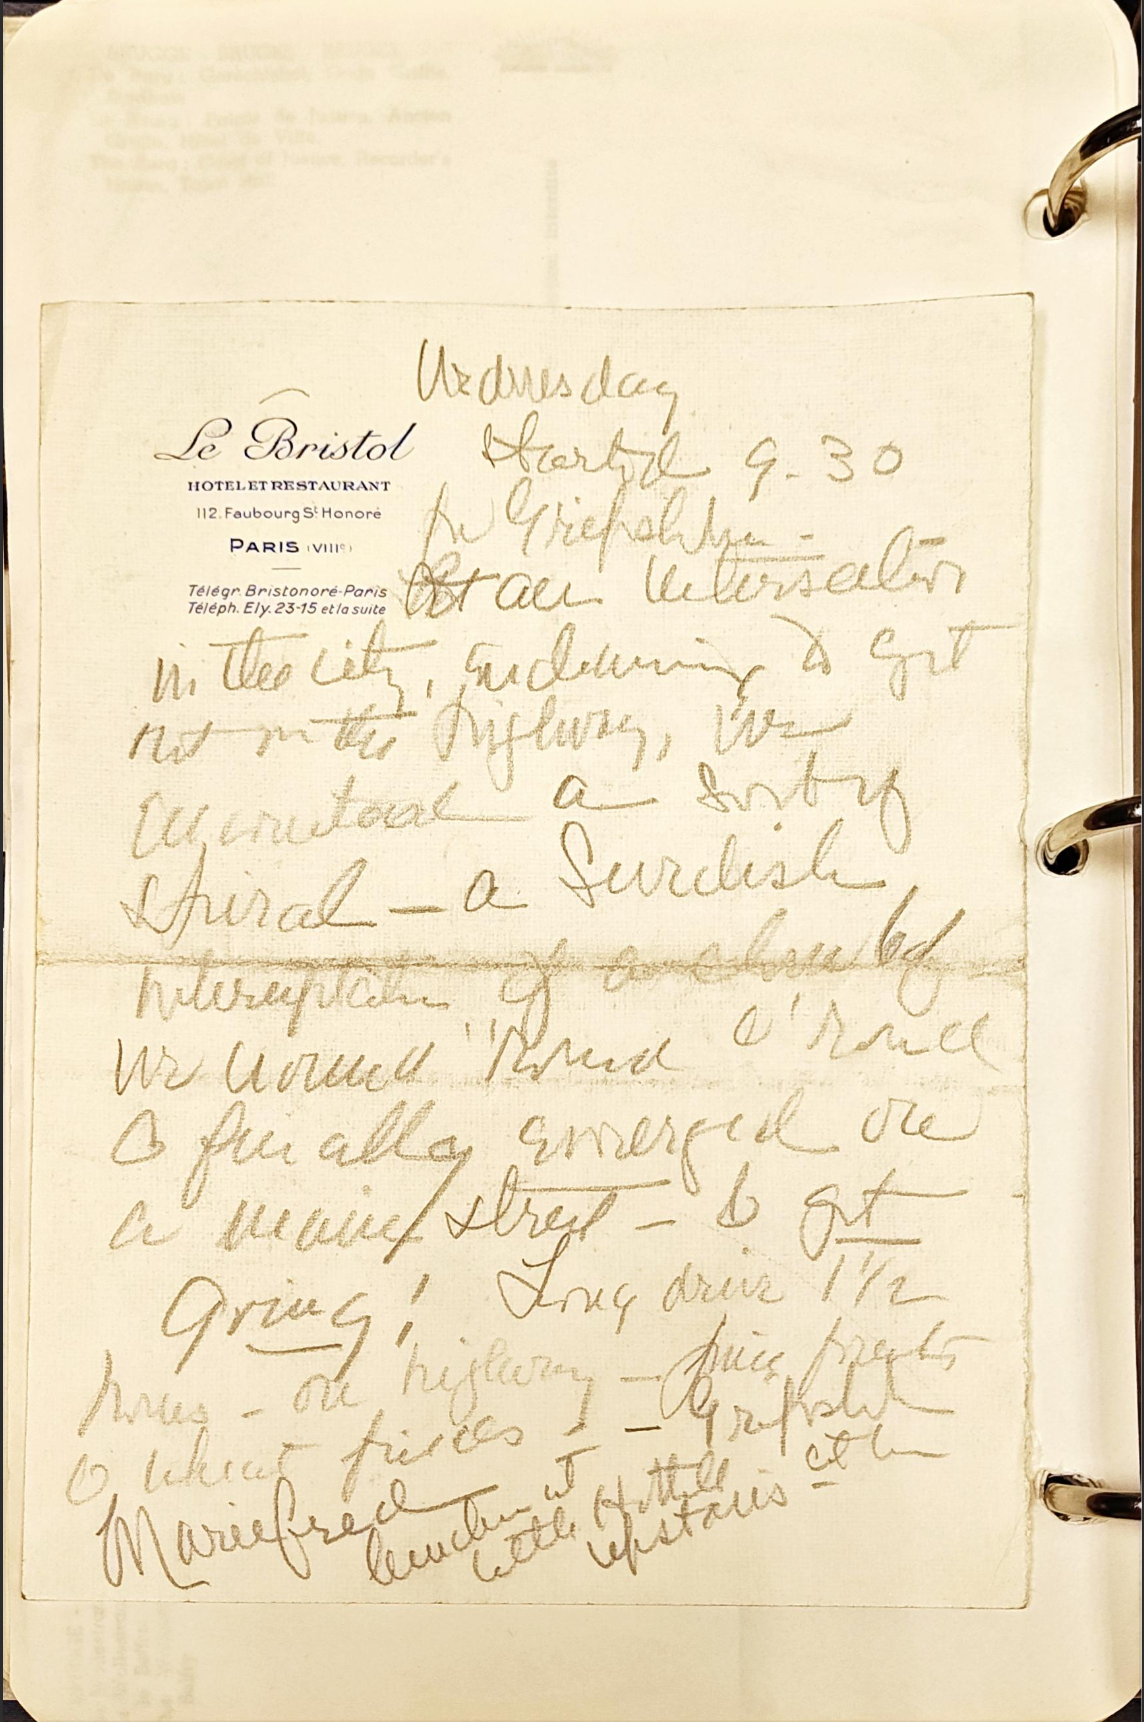 Wednesday
Le Bristol
HOTEL ET RESTAURANT
112. Faubourg St Honoré
PARIS (VIIIe)
Télégr. Bristonoré-Paris
Téléph. Ely. 23-15 et la suite
Started 9.30
for Gripsholm -
At an intersection
in the city, to get
out on the highway, we
a sort of
spiral - a Swedish
interruption of a
we wound "round & round
& finally emerged on
a main street - to get
going! Long drive 1 1/2
hours - on highway - pine forests
& wheat fields - - Gripsholm
Mariefred lunch at
little Hotell
upstairs